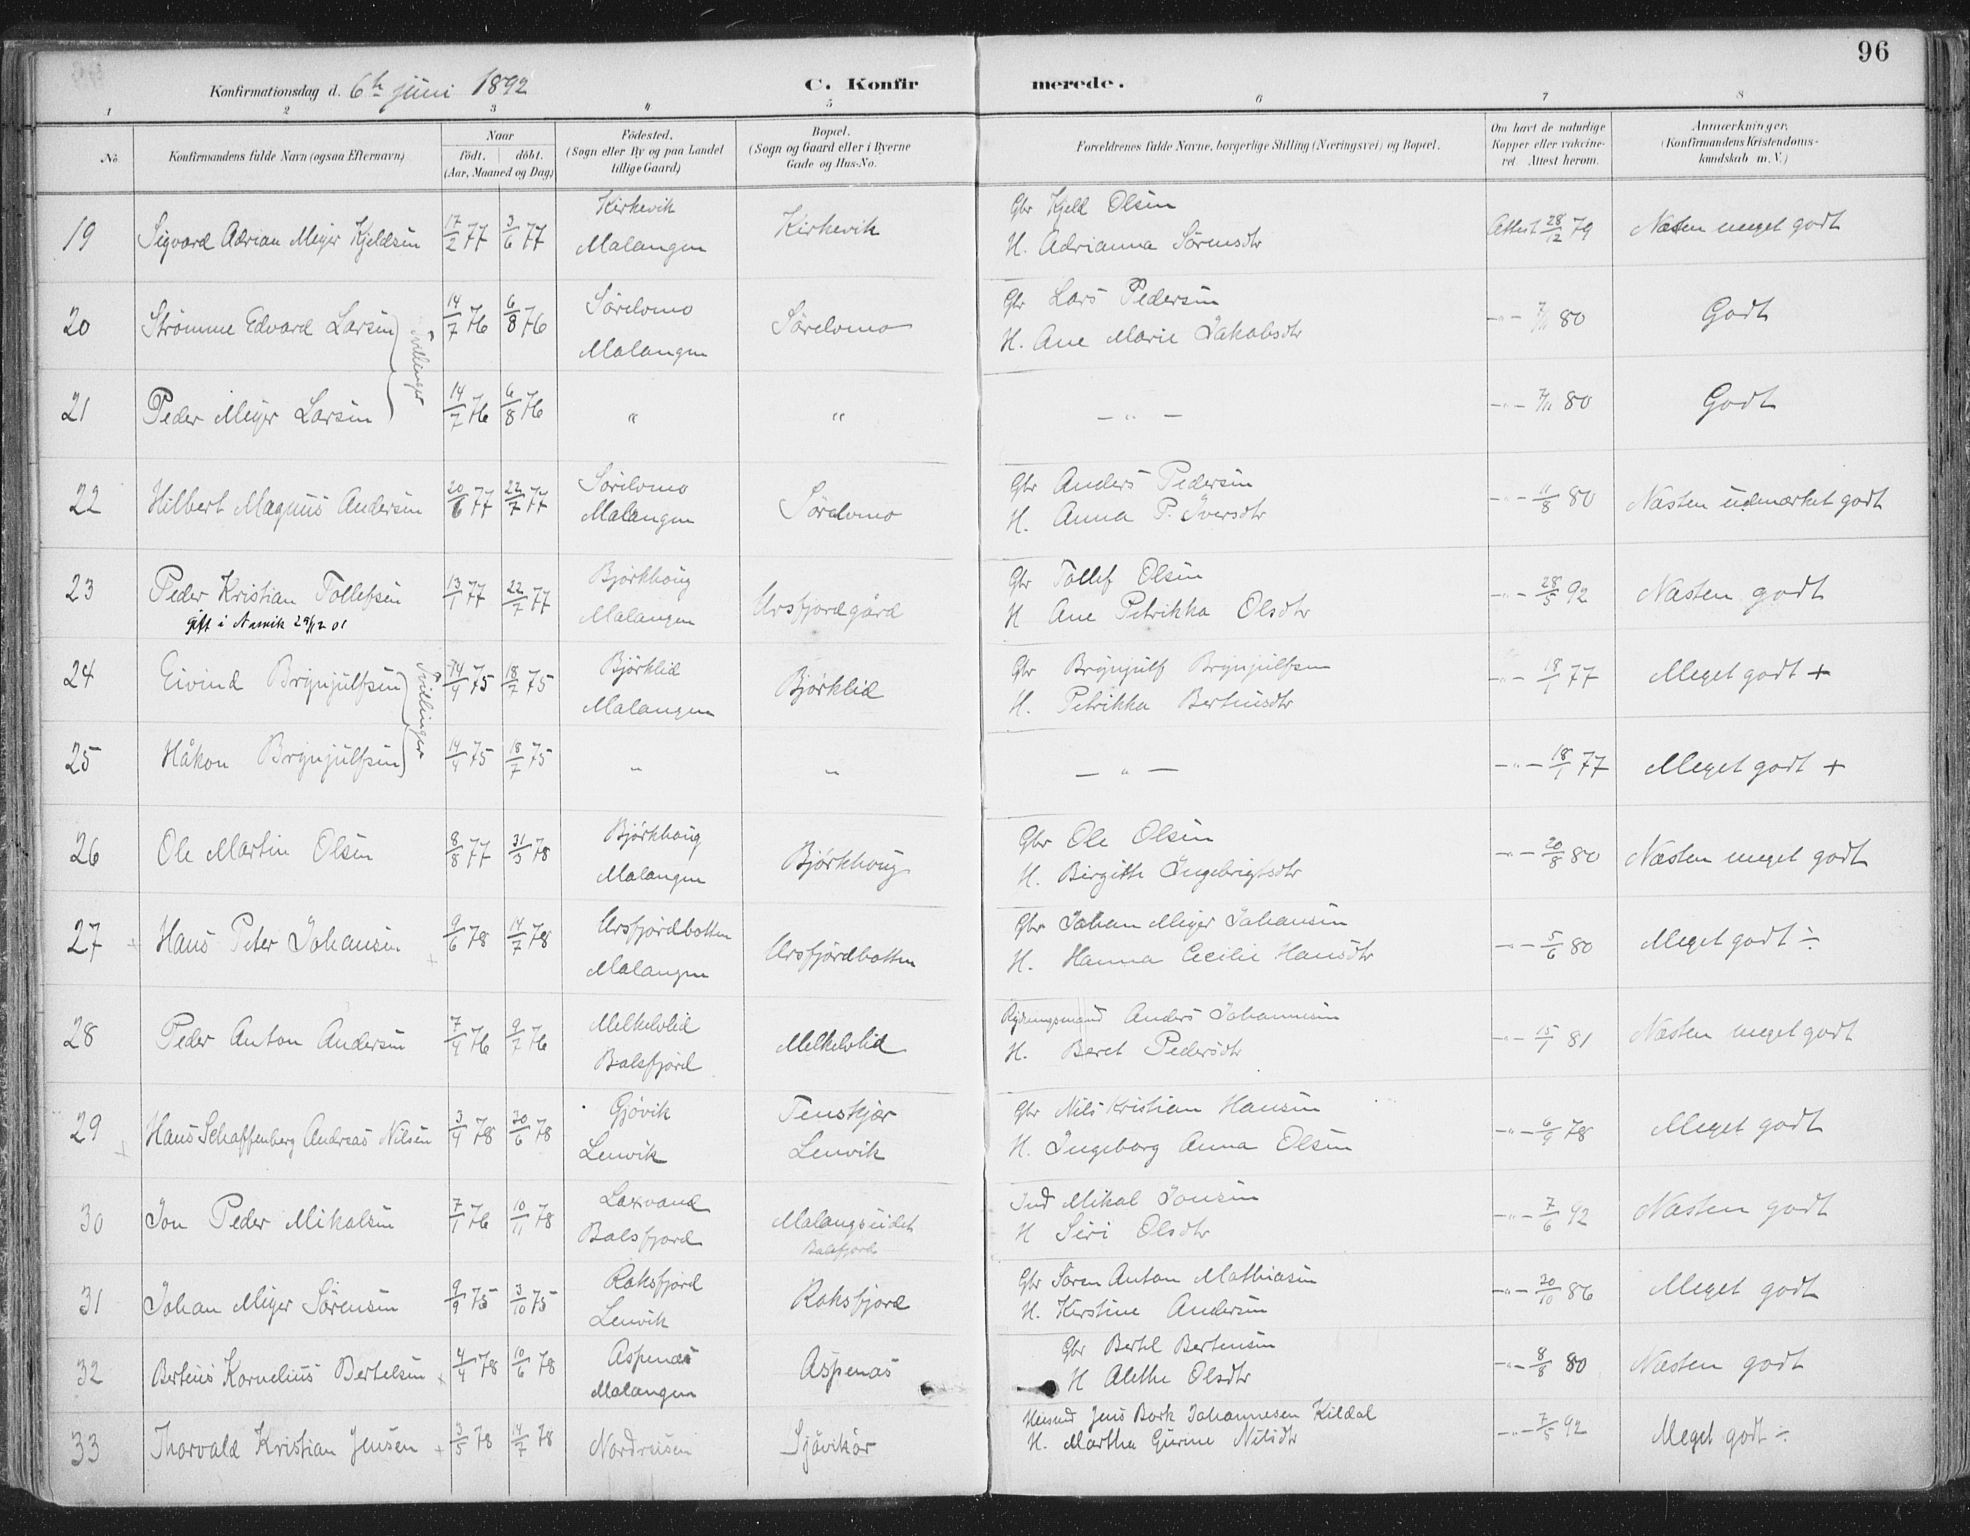 96
Konfirmationsdag d. 6te juni 1892 C. Konfirmerede.
1 2 3 4 5 6 7 8
No. Konfirmandens fulde Navn (ogsaa Efternavn) Naar født. døbt. (Aar, Maaned og Dag) Fødested. (Sogn eller By og paa Landet tillige Gaard) Bopæl. (Sogn og Gaard eller i Byerne Gade og Hus-No. Forældrenes fulde Navne, borgerlige Stilling (Næringsvei) og Bopæl. Om havt de naturlige Kopper eller vaccineret. Attest herom. Anmærkninger. (Konfirmandens Kristendomskundskab m. V.)
19 Sigvard Adrian Meyer Kjeldsen 17/2 77 3/6 77 Kirkevik Malangen Kirkevik Gbr Kjeld Olsen H. Adrianna Sørensdtr Attest 28/12 79 Næsten meget godt
20 Strømme Edvard Larsen Tvillinger 14/7 76 6/8 76 Sørelvmo Malangen Sørelvmo Gbr Lars Pedersen H. Ane Marie Jakobsdtr -"- 7/11 80 Godt
21 Peder Meyer Larsen 14/7 76 6/8 76 " " -"- -"- 7/11 80 Godt
22 Hilbert Magnus Andersen 20/6 77 22/7 77 Sørelvmo Malangen Sørelvmo Gbr Anders Pedersen H. Anna P. Iversdtr -"- 11/8 80 Næsten udmærket godt
23 Peder Kristian Tollefsen 13/1 77 22/7 77 Bjørkhoug Malangen Aursfjordgård Gbr Tollef Olsen H Ane Petrikka Olsdtr -"- 28/5 92 Næsten godt
gift i Narvik 29/12 01
24 Eivind Brynjulfsen Tvillinger 14/4 75 18/7 75 Bjørklid Malangen Bjørklid Gbr Brynjulf Brynjulfsen H. Petrikka Bertheusdtr -"- 18/1 77 Meget godt +
25 Håkon Brynjulfsen 14/4 75 18/7 75 " " -"- -"- 18/1 77 Meget godt +
26 Ole Martin Olsen 8/8 77 31/3 78 Bjørkhoug Malangen Bjørkhoug Gbr Ole Olsen H. Birgitte Ingebrigtsdtr -"- 20/8 80 Næsten meget godt
27 + Hans Peter Johansen + 9/6 78 14/7 78 Aursfjordbotten Malangen Aursfjordbotten Gbr Johan Meyer Johansen H. Hanna Cecilie Hansdtr -"- 5/6 80 Meget godt ÷
28 Peder Anton Andersen 7/4 76 9/7 76 Melkelvlid Balsfjord Melkelvlid Rydningsmand Anders Johannesen H. Beret Pedersdtr -"- 15/1 81 Næsten meget godt
29 + Hans Schaffenberg Andreas Nilsen 3/4 78 30/6 78 Gjøvik Lenvik Tenskjær Lenvik Gbr Nils Kristian Hansen H. Ingeborg Anna Olsen -"- 6/9 78 Meget godt
30 Jon Peder Mikalsen 7/1 76 10/11 78 Laxvand Balsfjord Malangseidet Balsfjord Ind Mikal Jonsen H Siri Olsdtr -"- 7/6 92 Næsten godt
31 Johan Meyer Sørensen 9/9 75 3/10 75 Roksfjord Lenvik Roksfjord Gbr Søren Anton Mathiasen H. Kerstine Andersen -"- 20/10 86 Meget godt
32 Berteus Kornelius Bertelsen + 4/4 78 10/6 78 Aspenæs Malangen Aspenæs Gbr Bertel Bertensen H Alethe Olsdtr -"- 8/8 80 Næsten godt
33 Thorvald Kristian Jensen + 3/5 78 14/7 78 Nordreisen Sjåvikør Jens Bork Johannesen Kildal H. Martha Gurine Nilsdtr -"- 7/5 92 Meget godt ÷